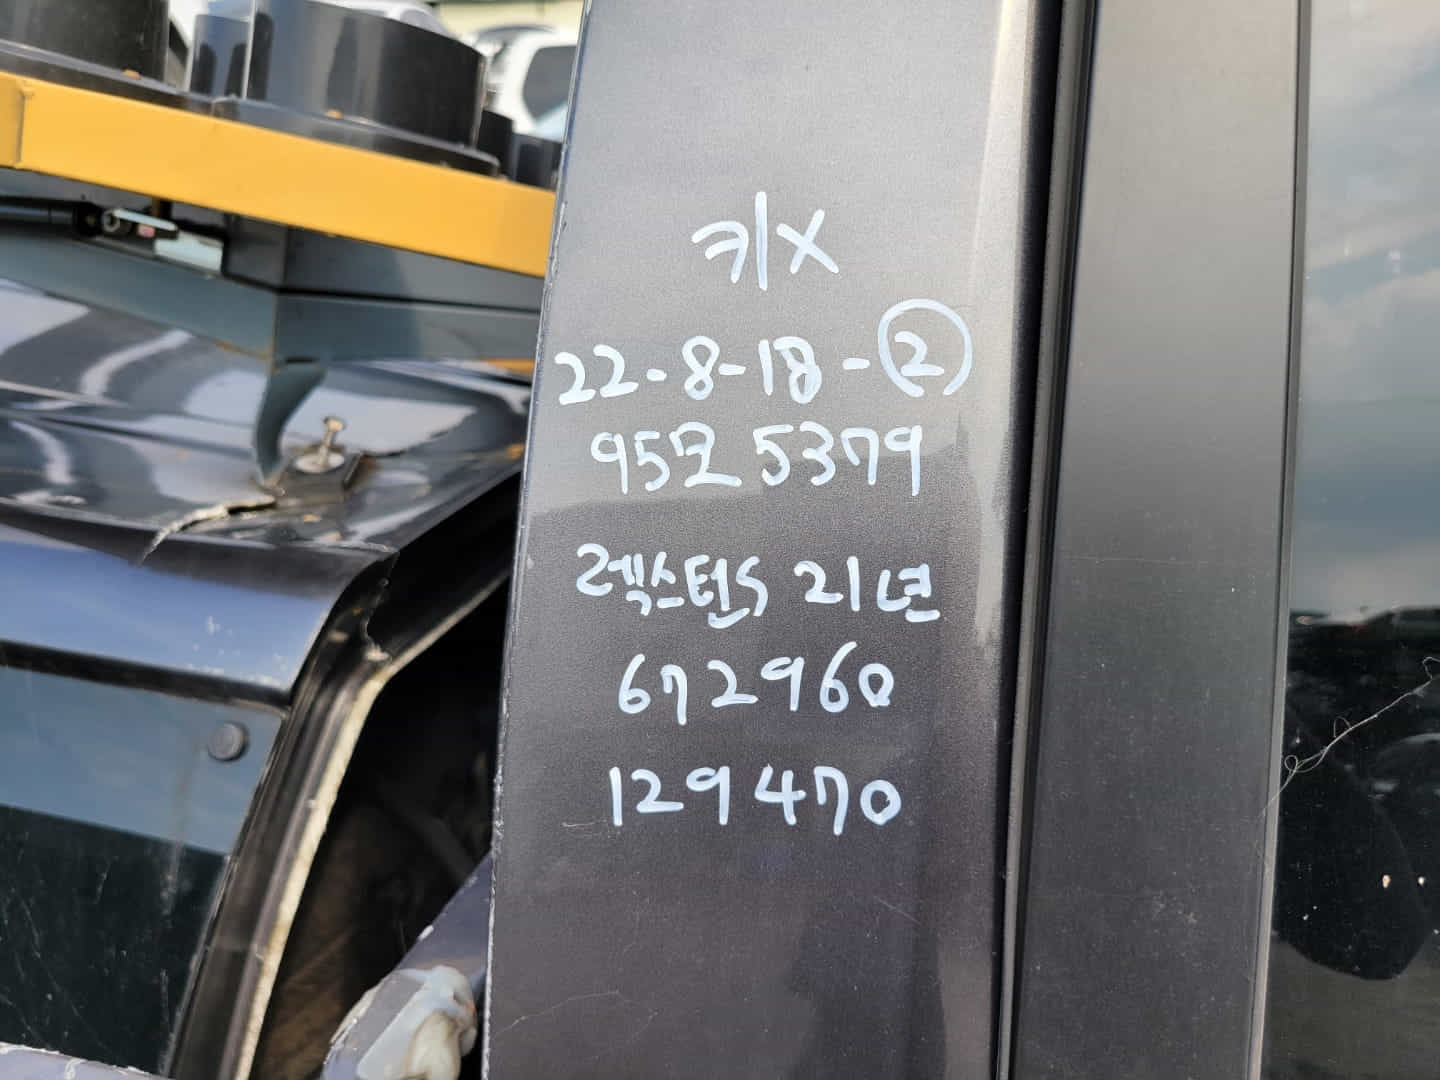 키X
22-8-18-②
95모 5379
렉스턴S 21년
672960
129470